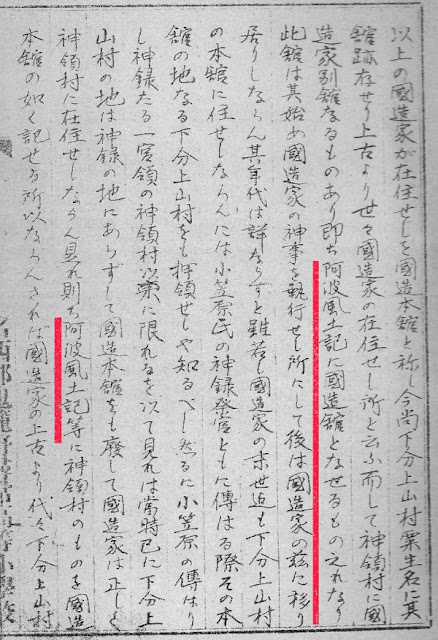 以上の國造家が在住せしを國造本舘と称し今尚下分上山村粟生名に其
舘跡存せり上古より世々國造家の在住せし所と云ふ而して神領村に國
造家別舘なるものあり即ち阿波風土記に國造舘となせるもの之れなり
此舘は其始め國造家の神事を執行せし所にして後は國造家の茲に移り
居りしならん其年代は詳ならずと雖若し國造家の末世迠も下分上山村
の本舘に住せしならんには小笠原氏の神録 ともに傳はる際その本
舘の地なる下分上山村をも拝領せしや知るべし然るに小笠原の傳はり
し神録たる一宮領の神領村以東に限れるを以て見れは當時已に下分上
山村の地は神録の地にあらずして國造本舘をも廢して國造家は正しく
神領村に在住せしならん是れ則ち阿波風土記等に神領村のものを國造
本舘の如く記せる所以ならんされは國造家の上古より代々下分上山村